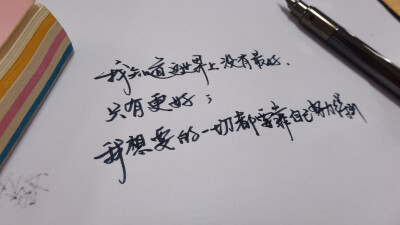 我知道这世界上没有最好.
只有更好;
我想要的一切都要靠自己努力得到